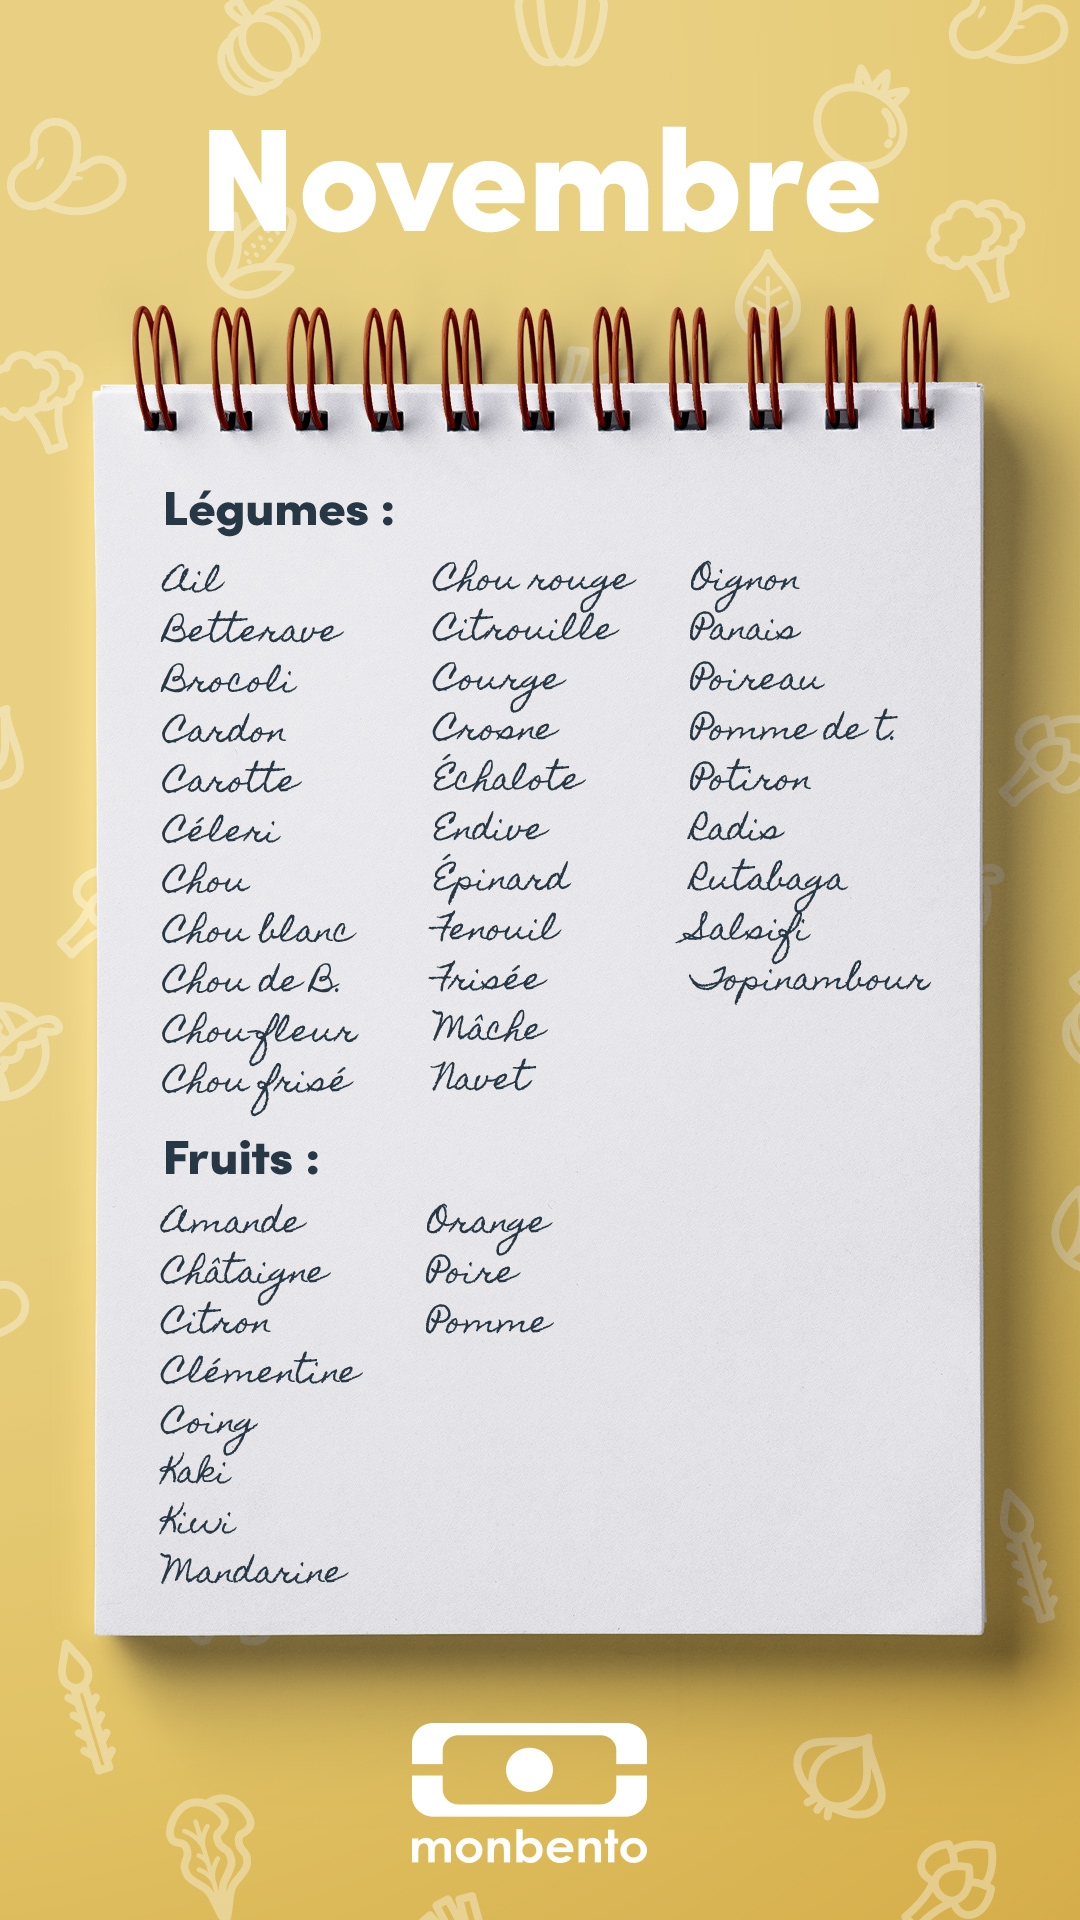 Novembre
Légumes :
Ail
Betterave
Brocoli
Cardon
Carotte
Céleri
Chou
Chou blanc
Chou de B.
Chou-fleur
Chou frisé
Chou rouge
Citrouille
Courge
Crosne
Échalote
Endive
Épinard
Fenouil
Frisée
Mâche
Navet
Oignon
Panais
Poireau
Pomme de t.
Potiron
Radis
Rutabaga
Salsifi
Topinambour
Fruits :
Amande
Châtaigne
Citron
Clémentine
Coing
Kaki
Kiwi
Mandarine
Orange
Poire
Pomme
monbento